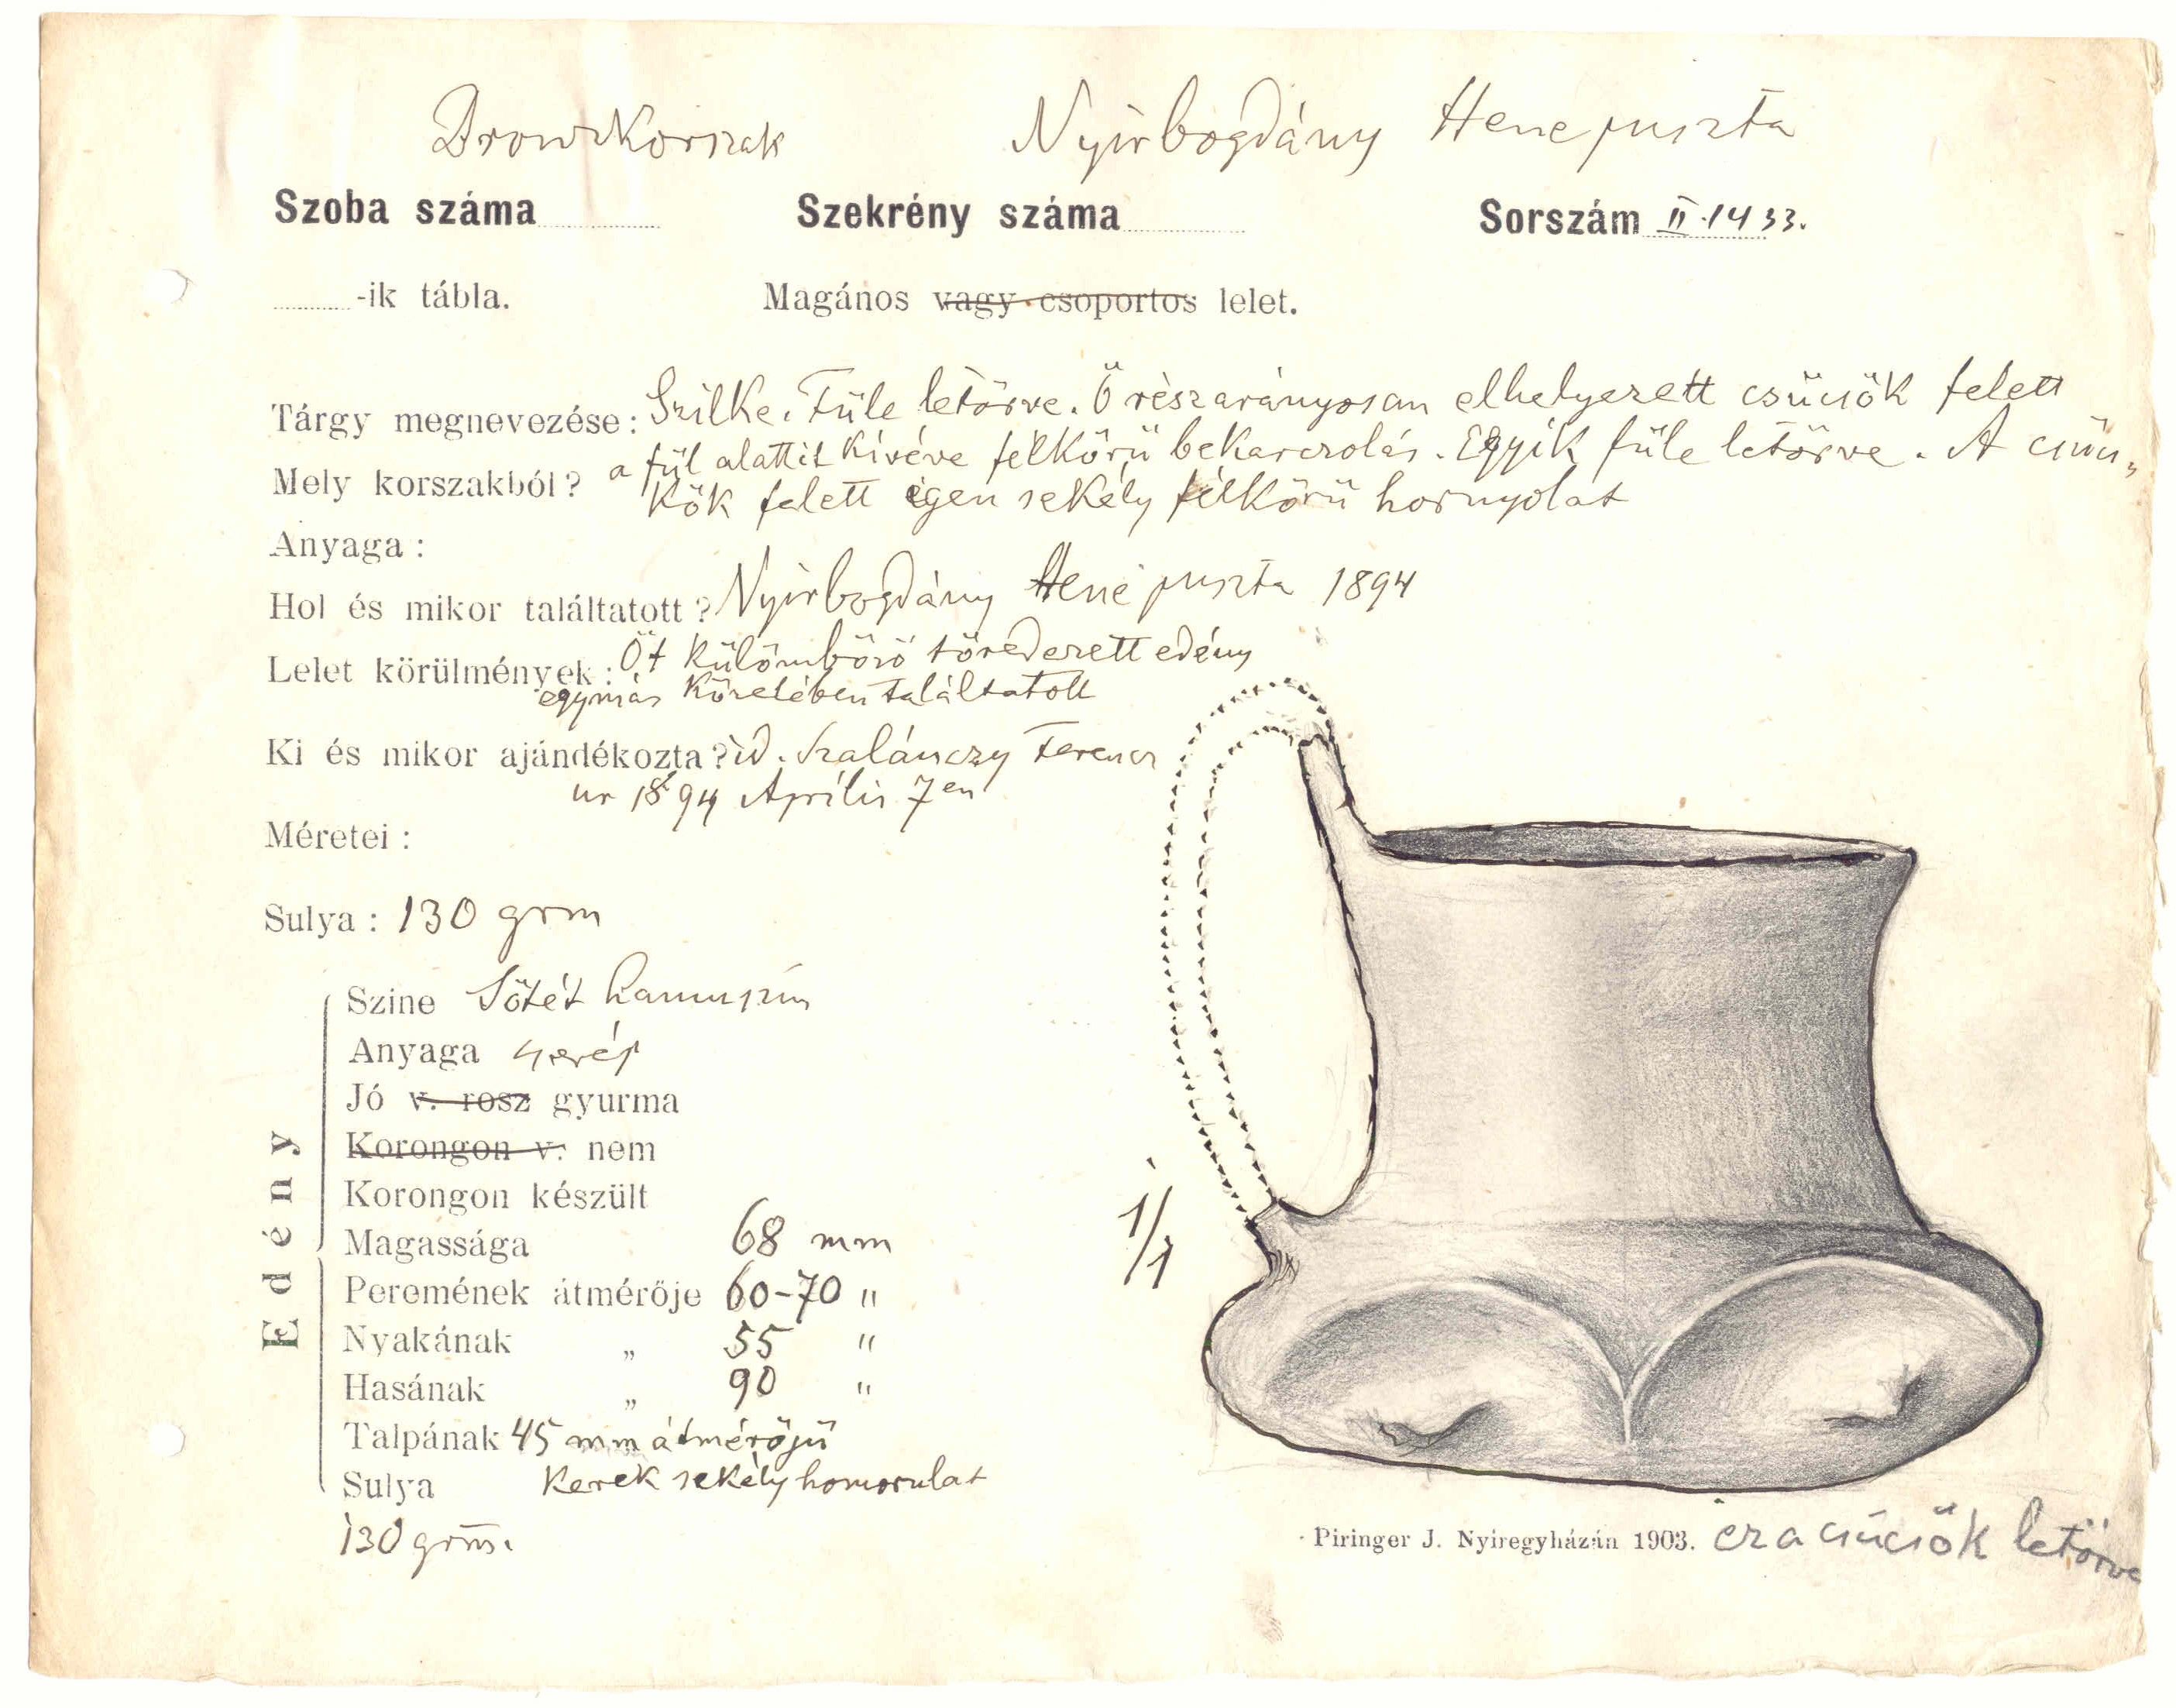 Bronzkorszak Nyirbogdány Hene puszta
Szoba száma Szekrény száma Sorszám II.1433.
-ik tábla. Magános vagy csoportos lelet.
Tárgy megnevezése: Szilke. Füle letörve. Ö részarányosan elhelyezett csücsök felett
a fül alattit kivéve félkörü bekarczolás. Egyik füle letörve. A csücs„
Mely korszakból? kök felett igen sekély félkörü hornyolat
Anyaga:
Hol és mikor találtatott? Nyirbogdány Hene puszta 1894
Lelet körülmények: Öt külömböző töredezett edény
egymás közelében találtatott
Ki és mikor ajándékozta? id. Szalánczy Ferencz
ur 1894 Április 7en
Méretei:
Sulya: 130 grm
Edény
Szine Sötét hamuszin
Anyaga cserép
Jó v. rosz gyurma
Korongon v. nem
Korongon készült
Magassága 68 mm
Peremének átmérője 60-70 "
Nyakának „ 55 "
Hasának „ 90 "
Talpának 45 mm átmérőjü
kerek sekély homorulat
Sulya
130 grm.
1/1
Piringer J. Nyiregyházán 1903. ez a csücsök letörve